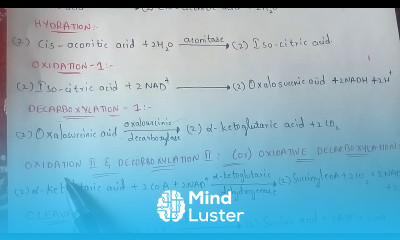 HYDRATION:-
(2) Cis-aconitic acid + 2H₂O aconitase → (2) Iso-citric acid
OXIDATION-1:-
(2) Iso-citric acid + 2NAD⁺ → (2) Oxalosuccinic acid + 2NADH + 2H⁺
DECARBOXYLATION-1:-
(2) Oxalosuccinic acid decarboxylase → (2) α-ketoglutaric acid + 2CO₂
OXIDATION II & DECARBOXYLATION II: (OR) OXIDATIVE DECARBOXYLATION:
(2) α-ketoglutaric acid + 2CoA + 2NAD⁺ α-ketoglutaric dehydrogenase → (2) Succinyl CoA + 2CO₂ + 2NAD
Mind
Luster